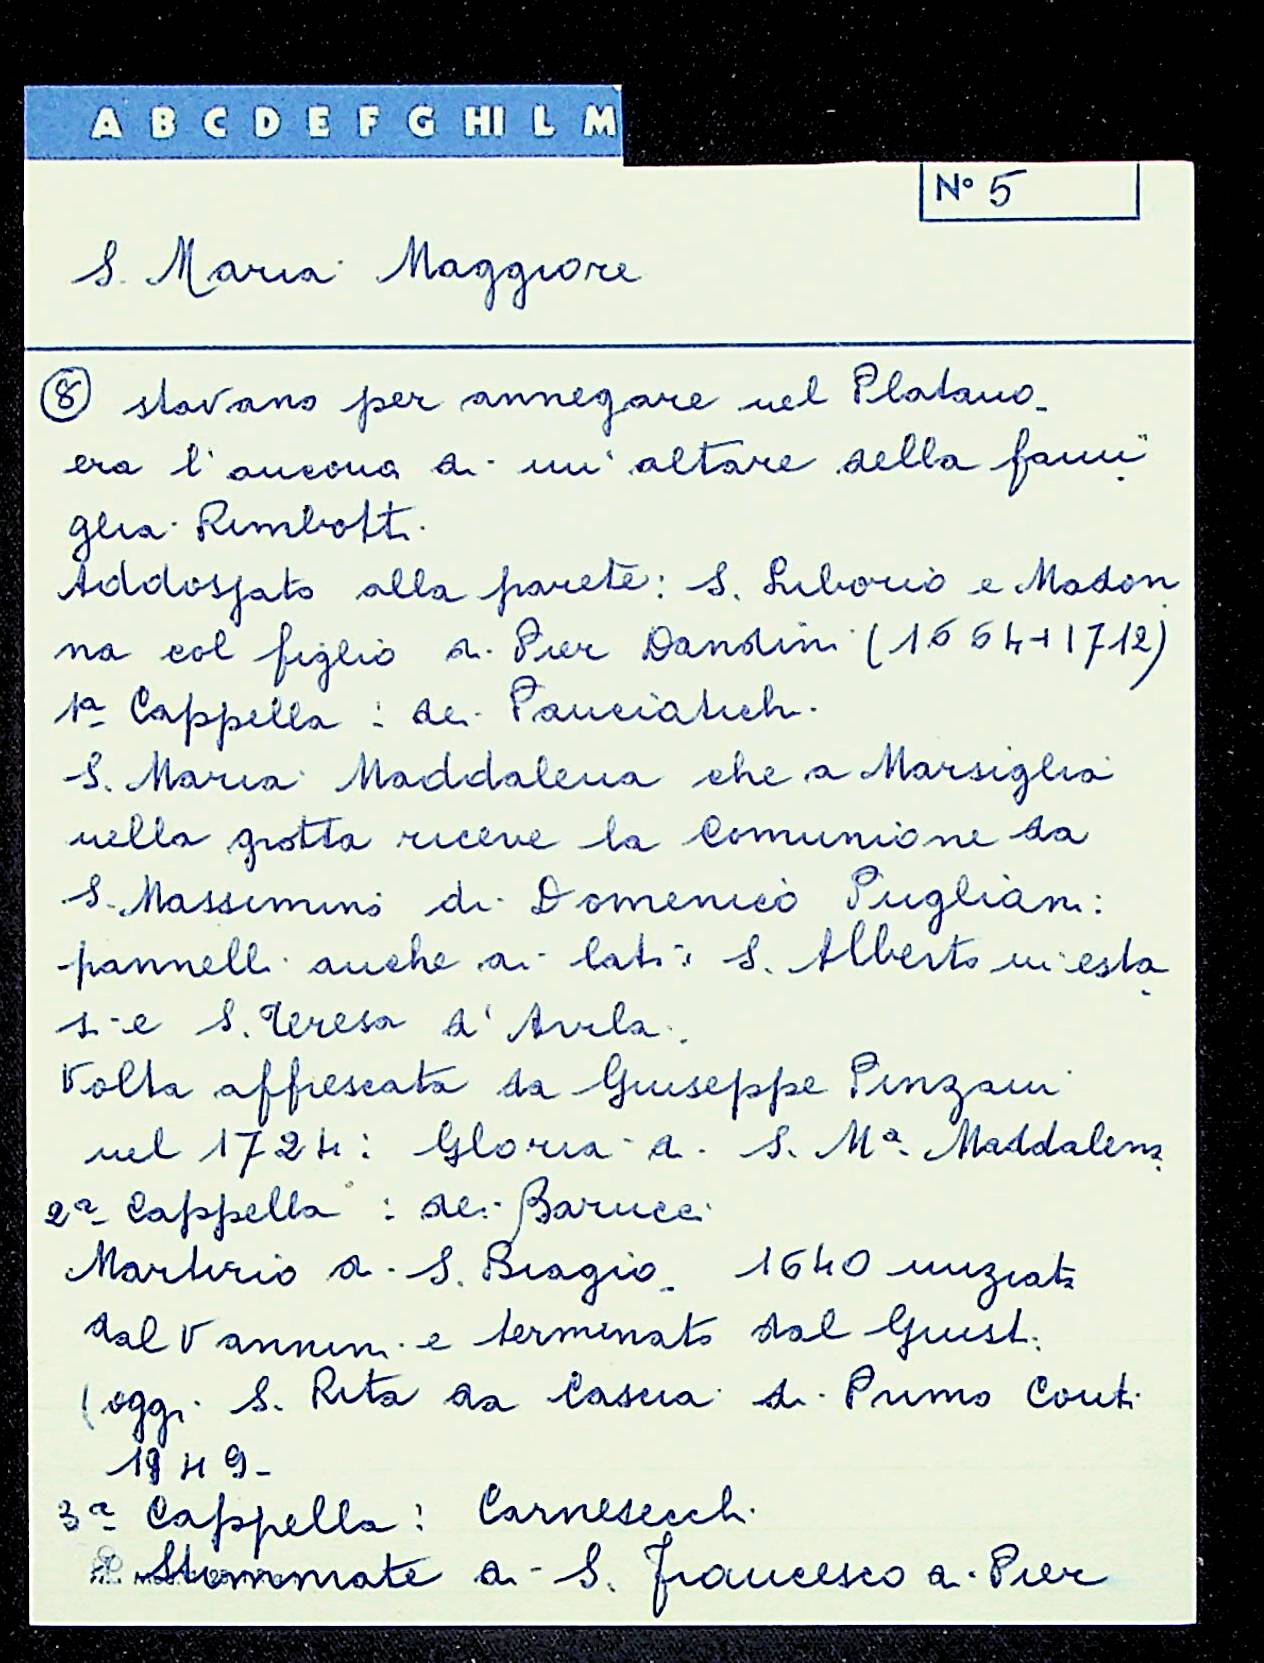 A B C D E F G HI L M
N° 5
S. Maria Maggiore
⑧ stavano per annegare nel Platano.
era l'ancona di un'altare della fami
glia Rimbotti.
Addossato alla parete: S. Liborio e Madon
na col figlio di Pier Dandini (1664+1712)
1ª Cappella : dei Panciatichi.
S. Maria Maddalena che a Marsiglia
nella grotta riceve la Comunione da
S. Massimino di Domenico Pugliani:
pannelli anche ai lati: S. Alberto in esta
si e S. Teresa d'Avila.
Volta affrescata da Giuseppe Pinzani
nel 1724: Gloria di S. Mª Maddalena
2ª Cappella : dei Barucci
Martirio di S. Biagio. 1640 iniziata
dal Vannini e terminato dal Giusti.
(oggi S. Rita da Cascia di Primo Conti
1949-
3ª Cappella: Carnesecchi.
Stimmate di S. Francesco di Pier